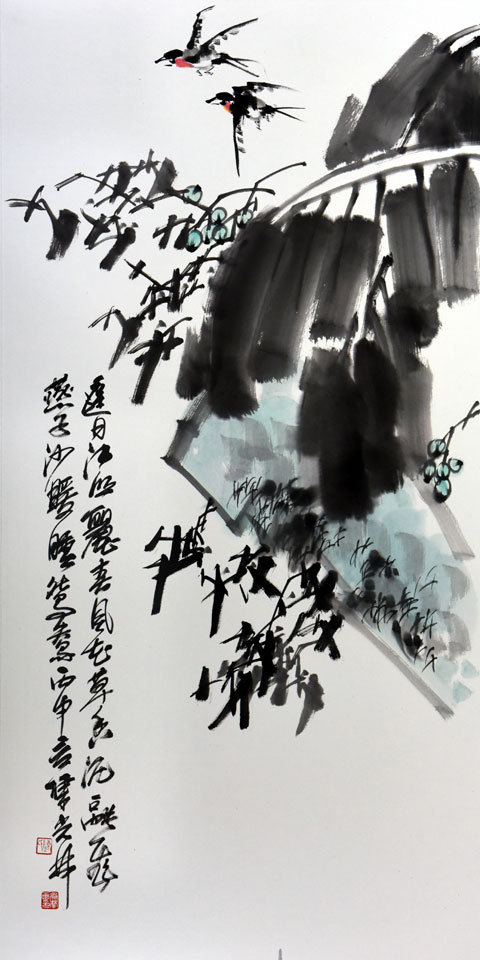 遲日江山麗春風花草香泥融飛
燕子沙暖睡鴛鴦丙申